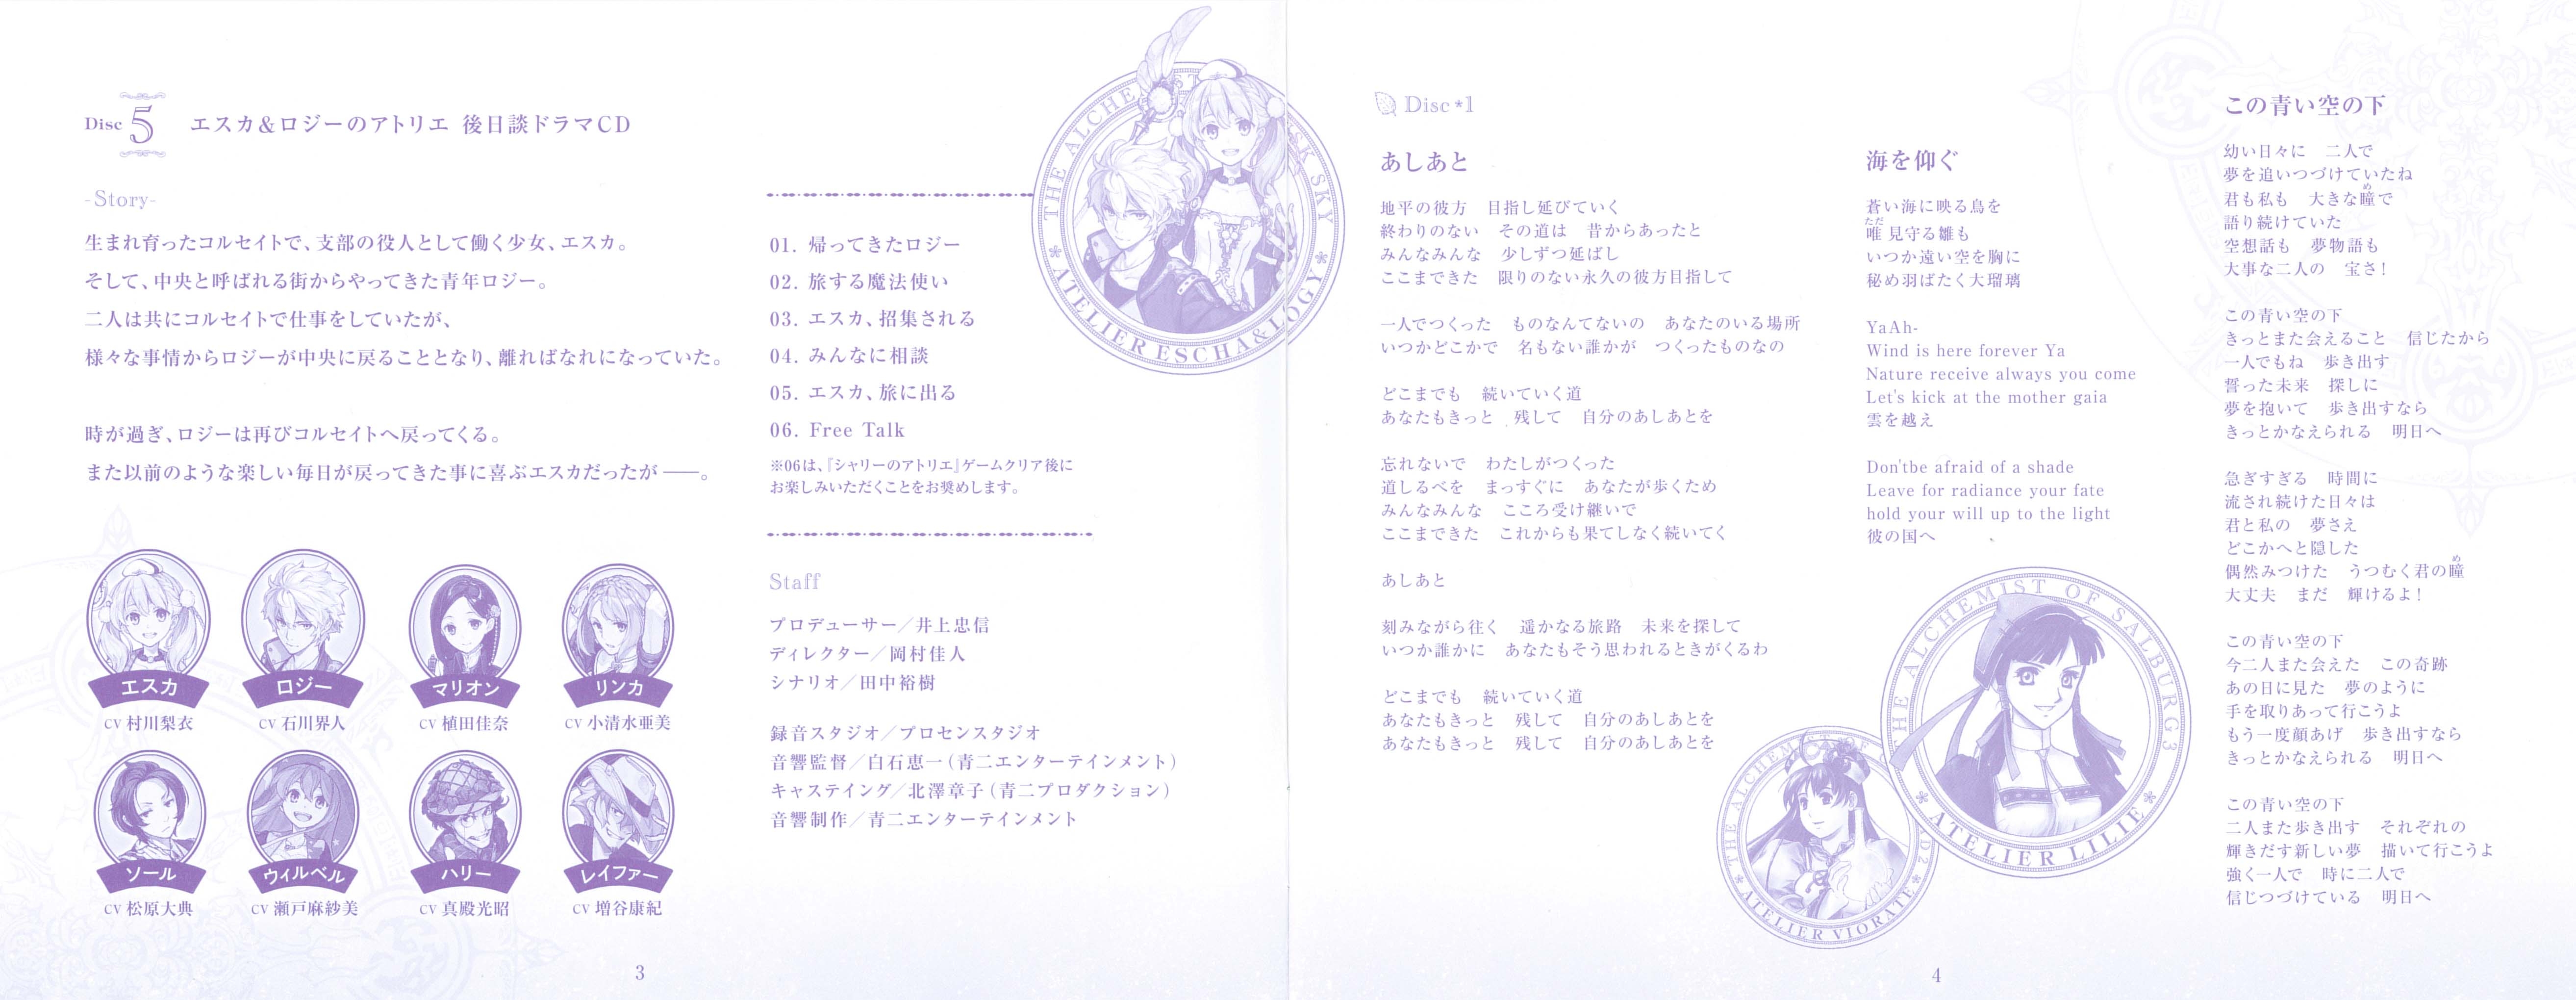 Disc 5 エスカ&ロジーのアトリエ 後日談ドラマCD
-Story-
生まれ育ったコルセイトで、支部の役人として働く少女、エスカ。
そして、中央と呼ばれる街からやってきた青年ロジー。
二人は共にコルセイトで仕事をしていたが、
様々な事情からロジーが中央に戻ることとなり、離ればなれになっていた。
時が過ぎ、ロジーは再びコルセイトへ戻ってくる。
また以前のような楽しい毎日が戻ってきた事に喜ぶエスカだったが ──。
エスカ
CV 村川梨衣
ロジー
CV 石川界人
マリオン
CV 植田佳奈
リンカ
CV 小清水亜美
ソール
CV 松原大典
ウィルベル
CV 瀬戸麻紗美
ハリー
CV 真殿光昭
レイファー
CV 増谷康紀
01. 帰ってきたロジー
02. 旅する魔法使い
03. エスカ、招集される
04. みんなに相談
05. エスカ、旅に出る
06. Free Talk
※06は、『シャリーのアトリエ』ゲームクリア後に
お楽しみいただくことをお奨めします。
Staff
プロデューサー／井上忠信
ディレクター／岡村佳人
シナリオ／田中裕樹
録音スタジオ／プロセンスタジオ
音響監督／白石恵一（青二エンターテインメント）
キャステイング／北澤章子（青二プロダクション）
音響制作／青二エンターテインメント
THE ALCHE SK SKY
ATELIER ESCHA&LOGY
3
Disc*1
あしあと
地平の彼方　目指し延びていく
終わりのない　その道は　昔からあったと
みんなみんな　少しずつ延ばし
ここまできた　限りのない永久の彼方目指して
一人でつくった　ものなんてないの　あなたのいる場所
いつかどこかで　名もない誰かが　つくったものなの
どこまでも　続いていく道
あなたもきっと　残して　自分のあしあとを
忘れないで　わたしがつくった
道しるべを　まっすぐに　あなたが歩くため
みんなみんな　こころ受け継いで
ここまできた　これからも果てしなく続いてく
あしあと
刻みながら往く　遥かなる旅路　未来を探して
いつか誰かに　あなたもそう思われるときがくるわ
どこまでも　続いていく道
あなたもきっと　残して　自分のあしあとを
あなたもきっと　残して　自分のあしあとを
海を仰ぐ
蒼い海に映る鳥を
ただ
唯 見守る雛も
いつか遠い空を胸に
秘め羽ばたく大瑠璃
YaAh-
Wind is here forever Ya
Nature receive always you come
Let's kick at the mother gaia
雲を越え
Don'tbe afraid of a shade
Leave for radiance your fate
hold your will up to the light
彼の国へ
THE ALCHEMIST OF SALBURG3
ATELIER LILIE
THE ALCHEMIST OF
ATELIER VIORATE
この青い空の下
幼い日々に　二人で
夢を追いつづけていたね
め
君も私も　大きな瞳で
語り続けていた
空想話も　夢物語も
大事な二人の　宝さ！
この青い空の下
きっとまた会えること　信じたから
一人でもね　歩き出す
誓った未来　探しに
夢を抱いて　歩き出すなら
きっとかなえられる　明日へ
急ぎすぎる　時間に
流され続けた日々は
君と私の　夢さえ
どこかへと隠した
め
偶然みつけた　うつむく君の瞳
大丈夫　まだ　輝けるよ！
この青い空の下
今二人また会えた　この奇跡
あの日に見た　夢のように
手を取りあって行こうよ
もう一度顔あげ　歩き出すなら
きっとかなえられる　明日へ
この青い空の下
二人また歩き出す　それぞれの
輝きだす新しい夢　描いて行こうよ
強く一人で　時に二人で
信じつづけている　明日へ
4